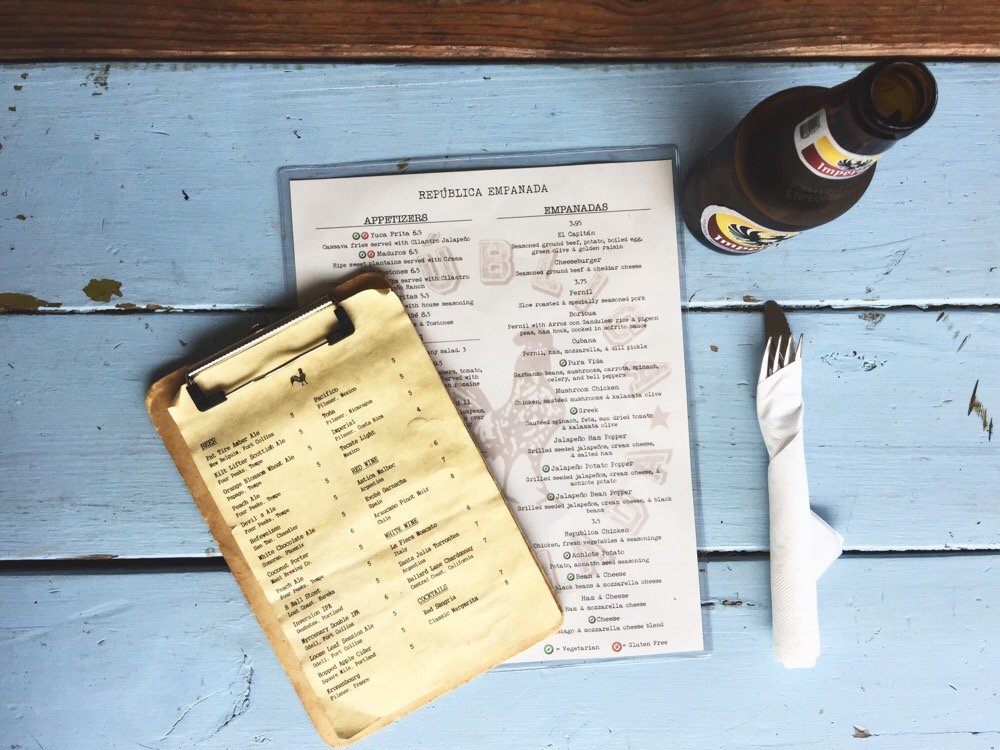 REPÚBLICA EMPANADA
APPETIZERS
Yuca Frita 6.5
Cassava fries served with Cilantro Jalapeño
Maduros 6.5
Ripe sweet plantains served with Crema
Tostones 6.5
served with Cilantro
Ranch
5.5
with house seasoning
8.5
& Tostones
salad. 3
tomato,
served with
romaine
EMPANADAS
3.95
El Capitán
Seasoned ground beef, potato, boiled egg,
green olive & golden raisin
Cheeseburger
Seasoned ground beef & cheddar cheese
3.75
Pernil
Slow roasted & specially seasoned pork
Boricua
Pernil with Arroz con Gandules: rice & pigeon
peas, ham hock, cooked in sofrito sauce
Cubana
Pernil, ham, mozzarella, & dill pickle
Pura Vida
Garbanzo beans, mushrooms, carrots, spinach,
celery, and bell peppers
Mushroom Chicken
Chicken, sautéed mushrooms & kalamata olive
Greek
Sautéed spinach, feta, sun dried tomato
& kalamata olive
Jalapeño Ham Popper
Grilled seeded jalapeños, cream cheese,
& salted ham
Jalapeño Potato Popper
Grilled seeded jalapeños, cream cheese, &
achiote potato
Jalapeño Bean Popper
Grilled seeded jalapeños, cream cheese, & black
beans
3.5
República Chicken
Chicken, fresh vegetables & seasonings
Achiote Potato
Potato, annatto seed seasoning
Bean & Cheese
black beans & mozzarella cheese
Ham & Cheese
Ham & mozzarella cheese
Cheese
& mozzarella cheese blend
= Vegetarian
= Gluten Free
BEER
Fat Tire Amber Ale 5
New Belgium, Fort Collins
Kilt Lifter Scottish Ale 5
Four Peaks, Tempe
Orange Blossom Wheat Ale 5
Papago, Tempe
Peach Ale 5
Four Peaks, Tempe
Devil's Ale 5
Hefeweizen 5
San Tan, Chandler
White Chocolate Ale 5
Sonoran, Phoenix
Coconut Porter 5
Maui Brewing Co.
Peach Ale 5
Four Peaks, Tempe
8 Ball Stout 5
Lost Coast, Eureka
Inversion IPA 5
Deschutes, Portland
Myrcenary Double IPA 6
Odell, Fort Collins
Loose Leaf Session Ale 5
Odell, Fort Collins
Hopped Apple Cider 5
Square Mile, Portland
Kronenbourg 5
Pilsner, France
Pacifico 5
Pilsner, Mexico
Toña 5
Pilsner, Nicaragua
Imperial 5
Pilsner, Costa Rica
Tecate Light 4
Mexico
RED WINE
Astica Malbec 6
Argentina
Evohé Garnacha 7
Spain
Araucano Pinot Noir 8
Chile
WHITE WINE
La Fiera Moscato 6
Italy
Santa Julia Torrontes 7
Argentina
Ballard Lane Chardonnay 7
Central Coast, California
COCKTAILS
Red Sangria 7
Classic Margarita 8
Imperial
Imperial